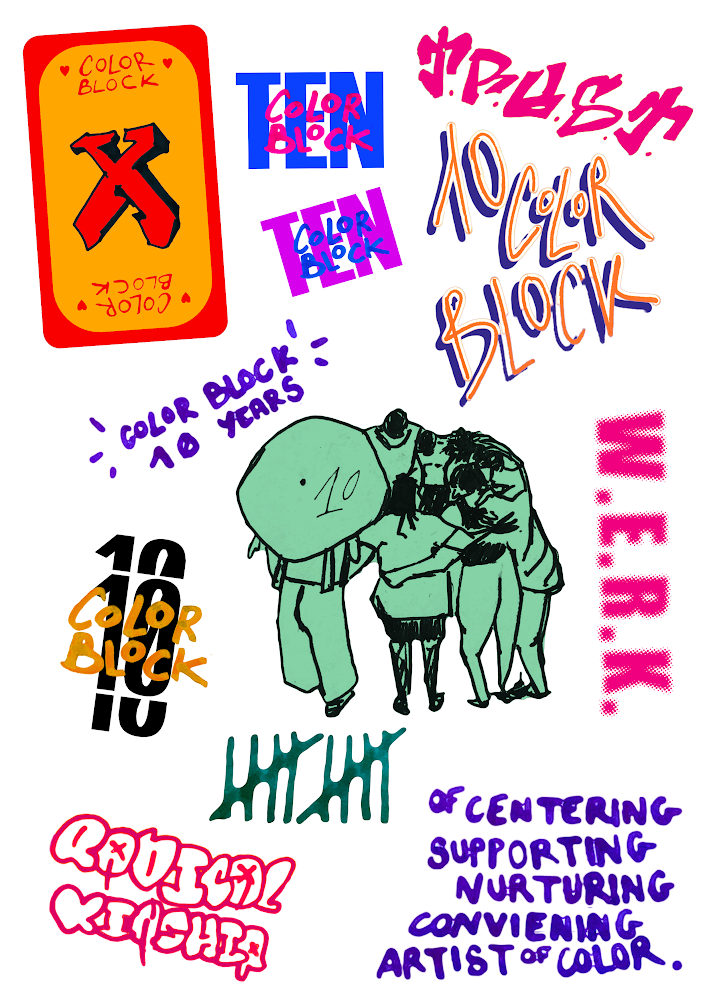 COLOR
BLOCK
X
COLOR
BLOCK
TEN
COLOR
BLOCK
T.R.U.S.T.
TEN
COLOR
BLOCK
10 COLOR
BLOCK
COLOR BLOCK
10 YEARS
10
W.E.R.K.
10
10
COLOR
BLOCK
10
10
RADICAL
KINSHIP
OF CENTERING
SUPPORTING
NURTURING
CONVIENING
ARTIST OF COLOR.